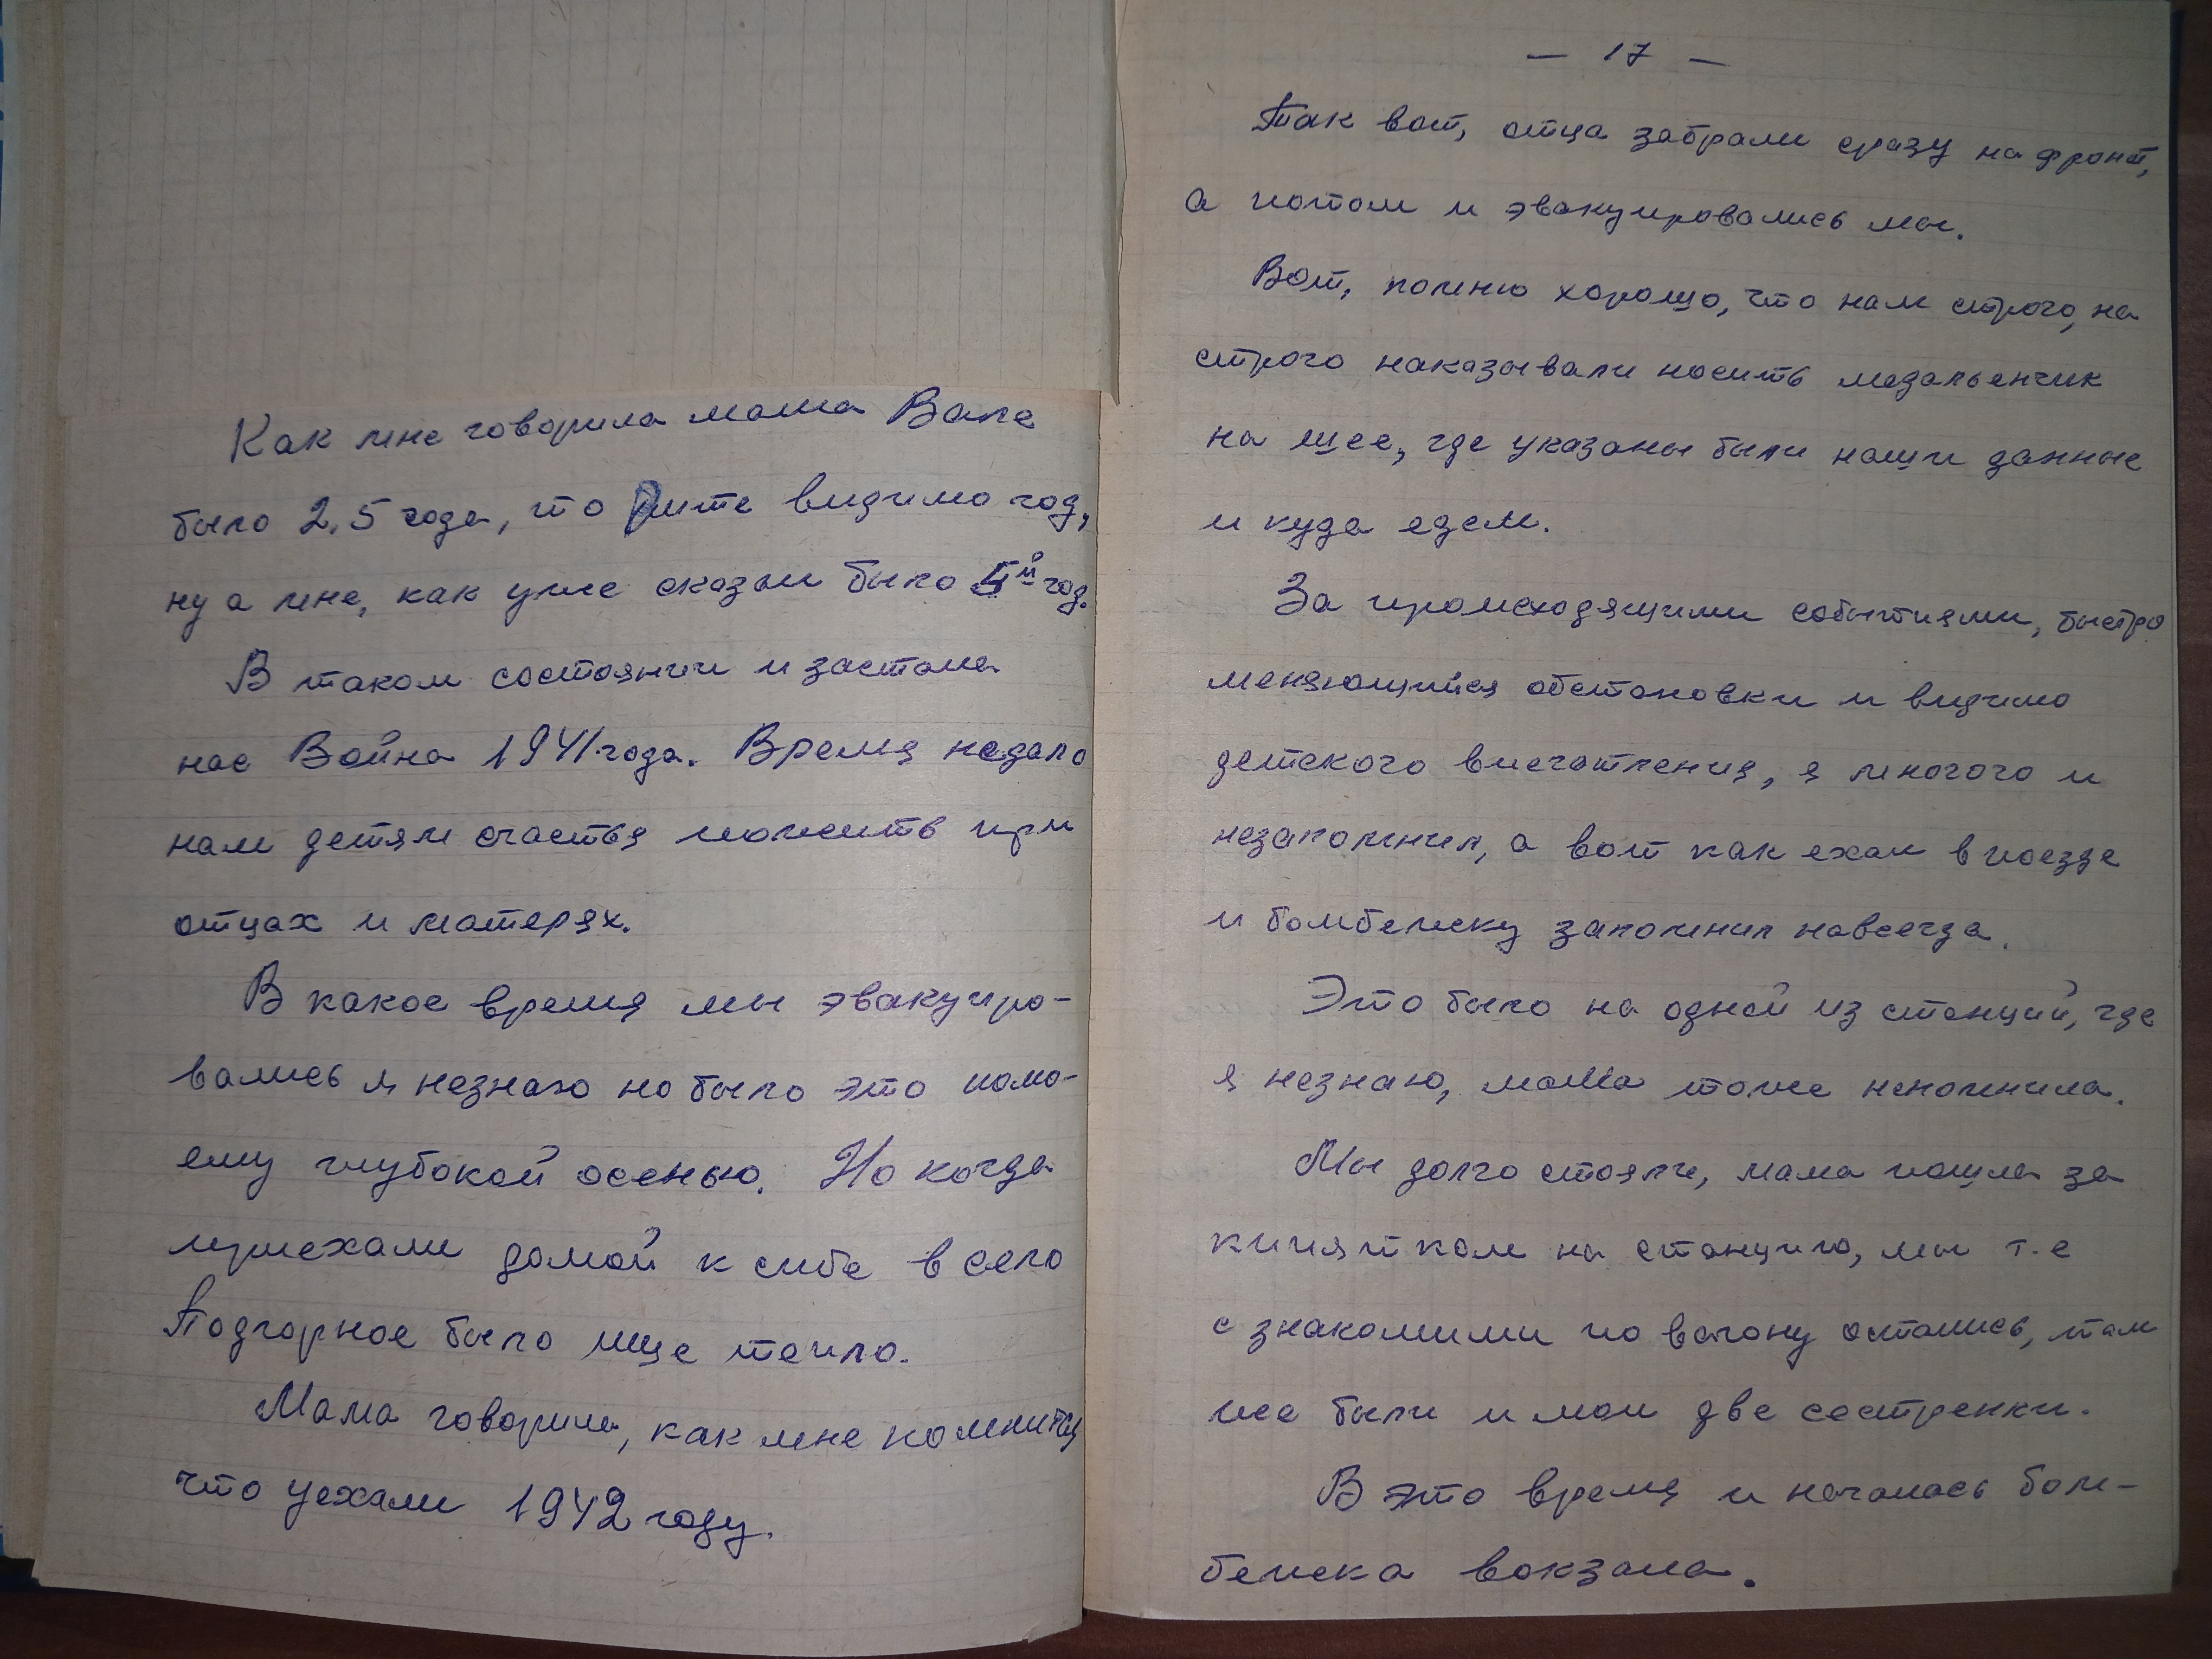 Как мне говорила мама Вале
было 2,5 года, то Рите видимо год,
ну а мне, как уже сказал было 5й год.
В таком состоянии и застала
нас Война 1941 года. Время недало
нам детям счастья пожить при
отцах и матерях.
В какое время мы эвакуиро-
вались я незнаю но было это помо-
ему глубокой осенью. Но когда
приехали домой к себе в село
Подгорное было еще тепло.
Мама говорила, как мне помнится
что уехали 1942 году.
— 17 —
Так вот, отца забрали сразу на фронт,
а потом и эвакуировались мы.
Вот, помню хорошо, что нам строго, на
строго наказывали носить медальенчик
на шее, где указаны были наши данные
и куда едем.
За происходящими событиями, быстро
меняющийся обстановки и видимо
детского впечатления, я многого и
незапомнил, а вот как ехал в поезде
и бомбежку запомнил навсегда.
Это было на одной из станций, где
я незнаю, мама тоже непомнила.
Мы долго стояли, мама пошла за
кипятком на станцию, мы т.е
с знакомыми по вагону остались, там
же были и мои две сестренки.
В это время и началась бом-
бежка вокзала.